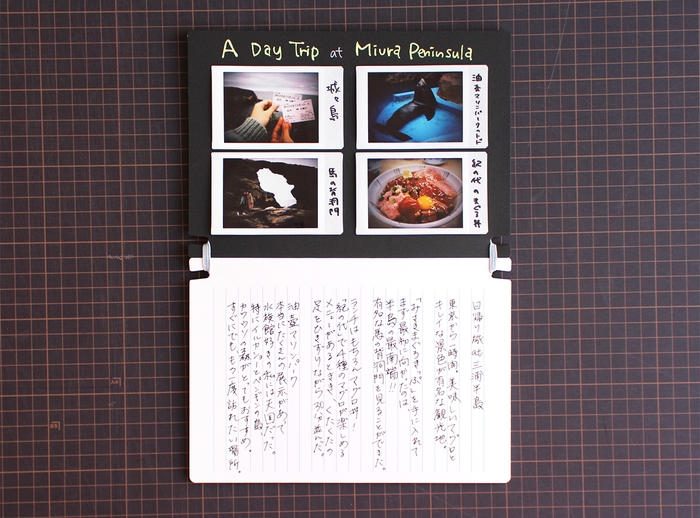 A Day Trip at Miura Peninsula
城ヶ島
油壺マリンパークのトド
馬の背洞門
紀の代のまぐろ丼
日帰り旅 at 三浦半島
東京から一時間、美味しいマグロと
キレイな景色が有名な観光地。
「みさきまぐろきっぷ」を手に入れて
まず最初に向かったのは
半島の最南端!!
有名な馬の背洞門を見ることができた。
ランチはもちろんマグロ丼!
「紀の代」で4種のマグロが楽しめる
メニューがあるときき、くたくたの
足をひきずりながら30分並んだ。
油壺マリンパーク
本当にたくさんの展示があって
水族館好きの私は天国だった。
特にイルカショーとペンギンの島、
カワウソの森がとってもおすすめ。
すぐにでももう一度訪れたい場所。